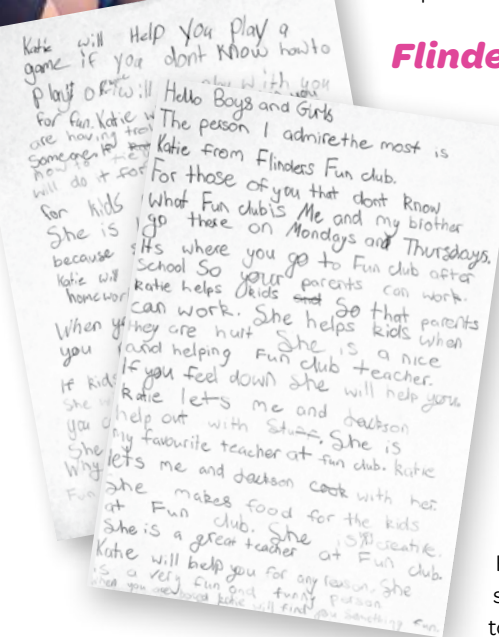 Flinde
Katie will Help You play a
game if you dont Know how to
play or will play with you
for fun. Katie w
are having tro
Someone
how to tie
will do it for
for kids
She is
because
Katie will
homewor
When y
you
If kids
She
you
She
Why
Fun
Hello Boys and Girls
The person I admire the most is
Katie from Flinders Fun club.
For those of you that dont Know
what Fun club is Me and my brother
go there on Mondays and Thursdays.
Its where you go to Fun club after
School So your parents can work.
Katie helps kids and So that parents
can work. She helps kids when
they are hurt She is a nice
and helping Fun club teacher.
If you feel down She will help you.
Katie lets me and Jackson
help out with Stuff. She is
my favourite teacher at fun club. Katie
lets me and Jackson cook with her.
She makes food for the kids
at Fun club. She is creative.
She is a great teacher at Fun club.
Katie will help you for any reason. She
is a very fun and funny person
when you are bored Katie will find you something fun.
s
to